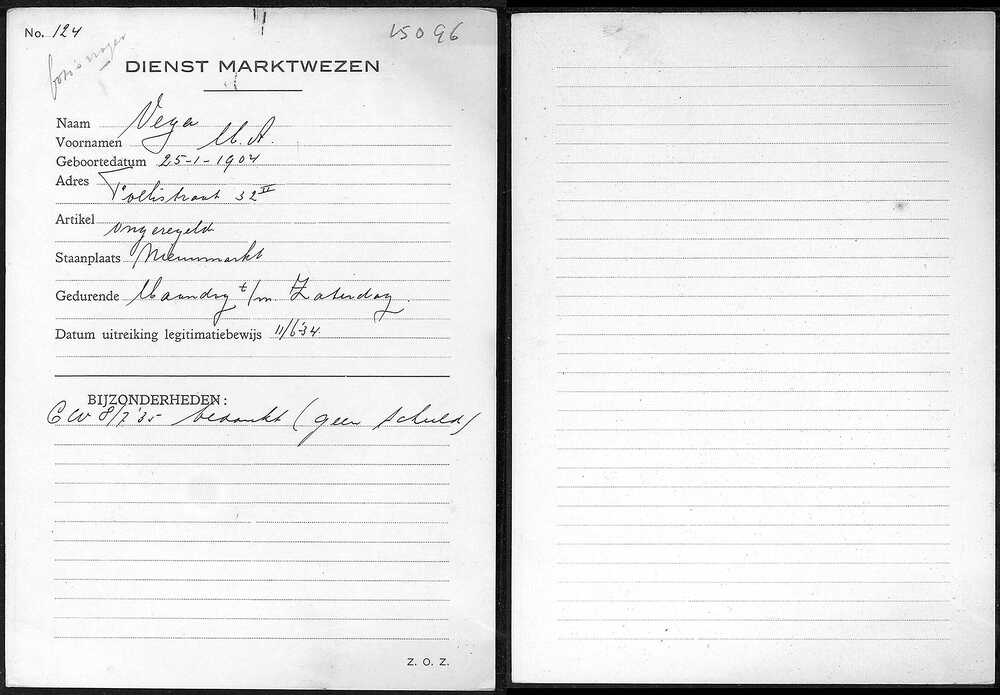 No. 124
15096
foto's vragen
DIENST MARKTWEZEN
Naam Vega
Voornamen M. A.
Geboortedatum 25-1-1904
Adres
Tolstraat 32 II
Artikel
ongeregeld
Staanplaats Nieuwmarkt
Gedurende Maandag t/m. Zaterdag.
Datum uitreiking legitimatiebewijs 11/6 '34
BIJZONDERHEDEN:
CW 8/7 '35 bedankt (geen schuld)
Z. O. Z.